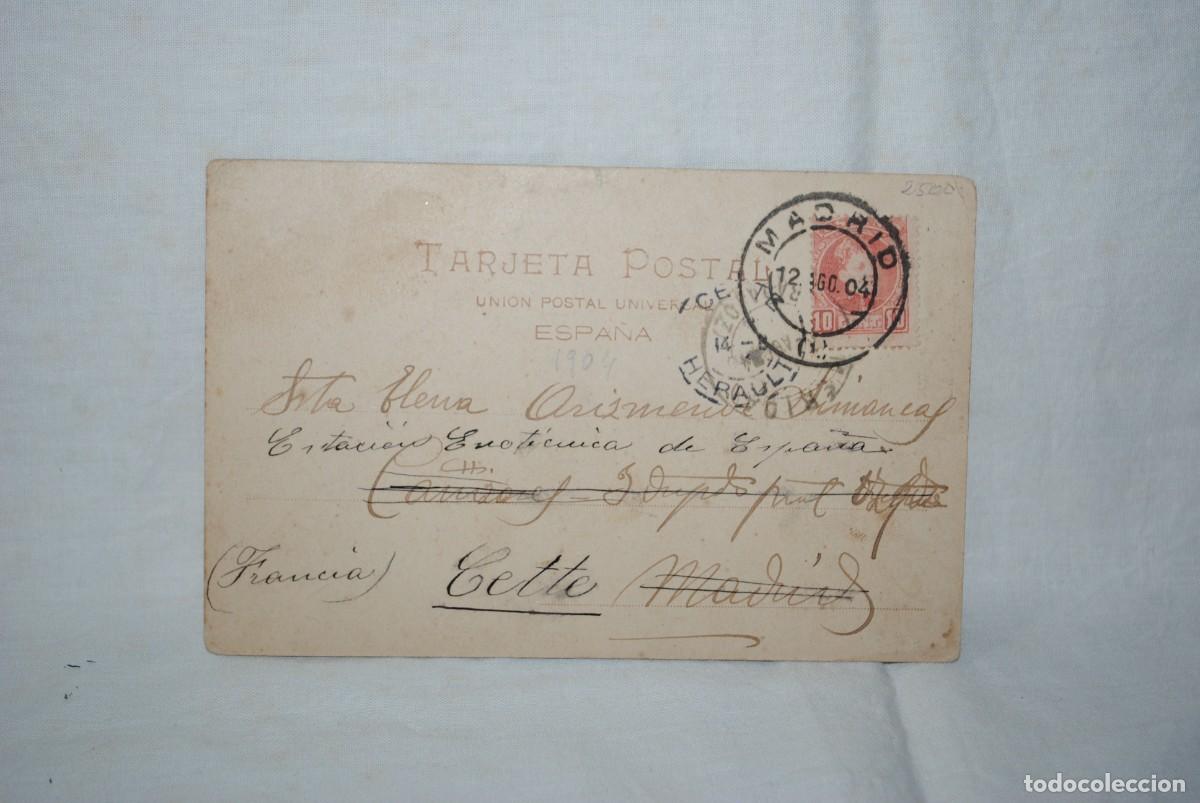 2500
TARJETA POSTAL
UNION POSTAL UNIVERSAL
ESPAÑA
1904
MADRID
12 AGO. 04
10 10
CETTE
14 -8
HERAULT
Srta Elena Arismendi Simancas
Estación Enotécnica de España
(Francia) Cette Madrid
todocoleccion